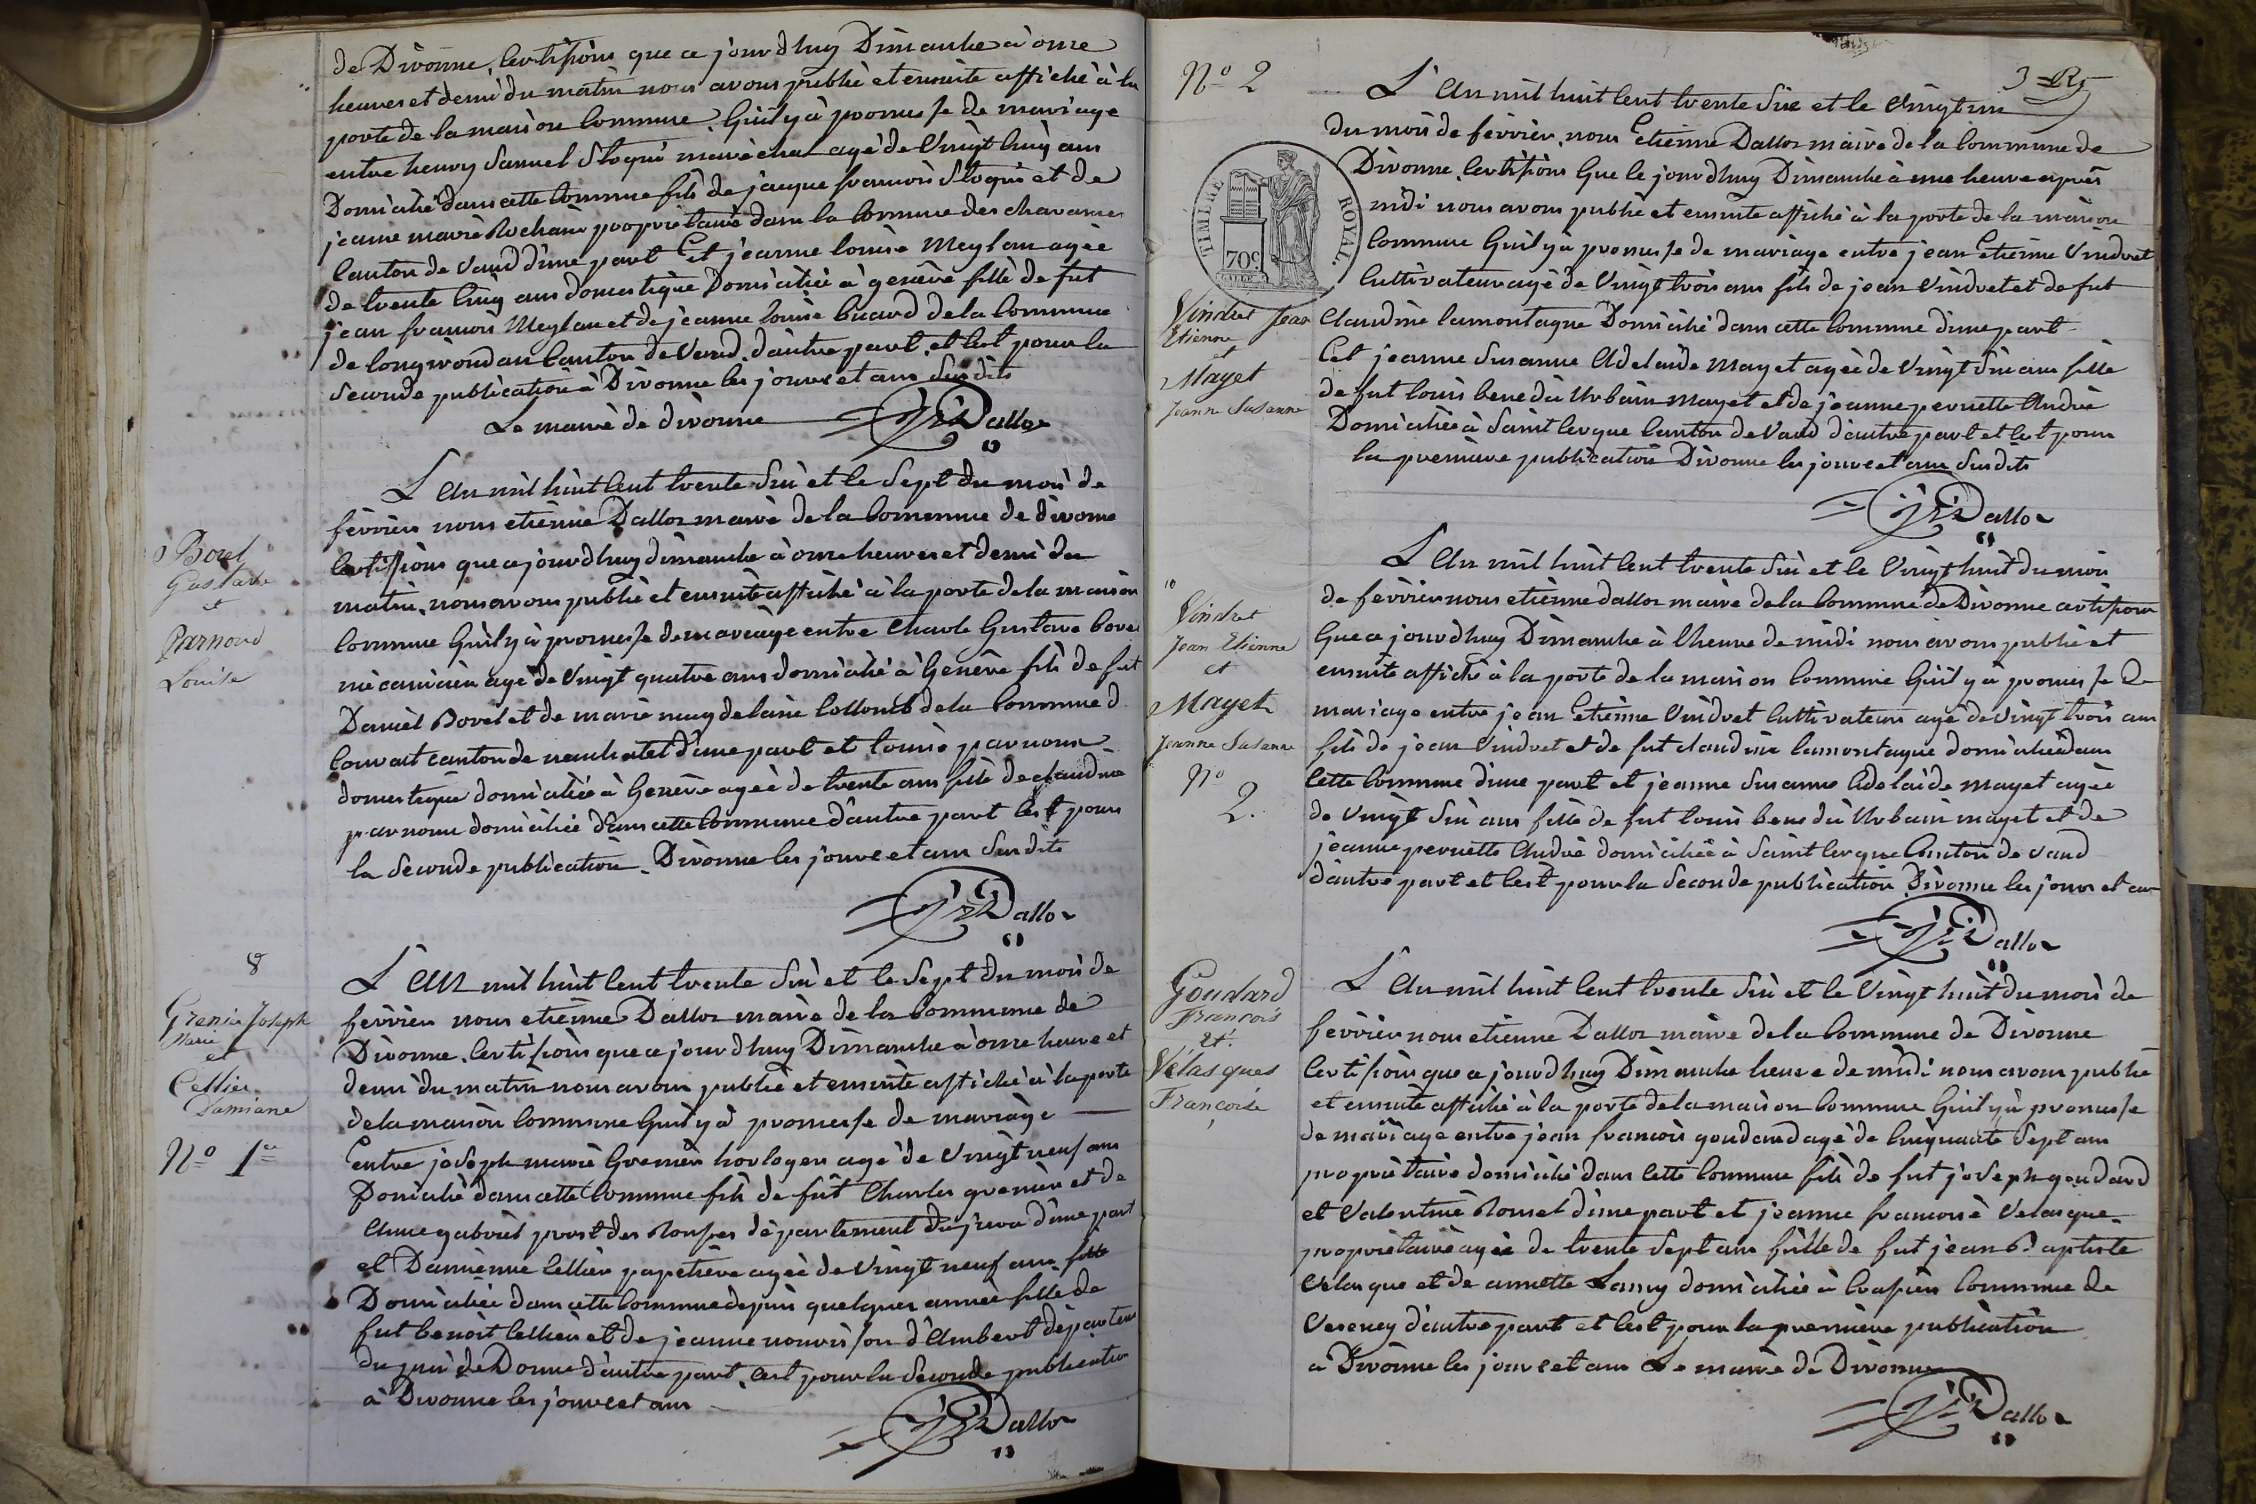 de Divonne, Certifions que ce jourdhuy Dimanche à onze
heures et demi du matin nous avons publié et ensuite affiché à la
porte de la maison Commune, Quil y à promesse de mariage
entre henry Samuel maréchal agé de Vingt huit ans
Domicilié dans cette Commune fils de jacque francois et de
jeanne marie Rochat propriétaire dans la Commune des charannes
Canton de Vaud dúne part Et jeanne louise Meylan agée
de trente Cinq ans domestique Domiciliée à genève fille de fut
jean francois Meylan et de jeanne louise de la Commune
de Canton de Vaud dáutre part, et Cet pour la
Seconde publication à Divonne les jours et ans Susdits
Le maire de divonne Dalloz
L'an mil huit Cent trente Six et le Sept du mois de
février nous etienne Dalloz maire de la Commune de divonne
Certifions que ce jourdhuy dimanche à onze heures et demi du
matin, nous avons publié et ensuite affiché à la porte de la maison
Commune Quil y à promesse de mariage entre Charle Gustave Bovet
mécanicien agé de Vingt quatre ans domicilié à Genève fils de fut
Daniel Bovet et de marie magdelaine Collomb de la Commune d
Couvait canton de neuchatel dúne part et louise parnoux
domestique domiciliée à Genève agée de trente ans fille de claudine
parnoux domiciliée dans cette Commune dáutre part Cest pour
la Seconde publication Divonne les jours et ans Susdits
Dalloz
Borel
Gustave
et
Parnoud
Louise
8
L'AN mil huit Cent trente Six et le Sept du mois de
février nous etienne Dalloz maire de la Commune de
Divonne, Certifions que ce jourdhuy Dimanche à onze heure et
demi du matin nous avons publié et ensuite affiché à la porte
de la maison Commune Quil y à promesse de mariage
Entre joseph marie Grenier horloger agé de Vingt neuf ans
Domicilié dans cette Commune fils de fut Charles grenier et de
Anne gabriel prost des Rousses département du jura dúne part
et Damienne Cellier papetière agée de Vingt neuf ans fille
Domiciliée dans cette Commune depuis quelques année fille de
fut benoit Cellier et de jeanne nourrisson d'Ambert départem
du puis de Dome dáutre part, Cest pour la Seconde publication
à Divonne les jours et ans
Dalloz
Grenier Joseph
Marie
et
Cellier
Damiane
No 1er
No 2
3 = R5
L'An mil huit Cent trente Six et le Vingt un
du mois de février, nous Etienne Dalloz maire de la Commune de
Divonne, Certifions Que le jourdhuy Dimanche à une heure après
midi nous avons publié et ensuite affiché à la porte de la maison
Commune Quil y à promesse de mariage entre jean Etienne Vindret
Cultivateur agé de Vingt trois ans fils de jean Vindret et de fut
Claudine lamontagne Domicilié dans cette Commune dúne part
Et jeanne Susanne Adelaide Mayet agée de Vingt Six ans fille
de fut louis benedit Urbain Mayet et de jeanne pernette André
Domiciliée à Saint Cergue Canton de Vaud dáutre part et Cet pour
la première publication Divonne les jours et ans Susdits
Dallo
TIMBRE ROYAL.
70c.
Vindret Jean
Etienne
et
Mayet
Jeanne Susanne
L'An mil huit Cent trente Six et le Vingt huit du mois
de février nous etienne dalloz maire de la Commune de Divonne certifions
Que ce jourdhuy Dimanche à lheure de midi nous avons publié et
ensuite affiché à la porte de la maison Commune Quil y à promesse De
mariage entre jean Etienne Vindret Cultivateur agé de Vingt trois ans
fils de jean Vindret et de fut claudine lamontagne domicilié dans
Cette Commune dúne part et jeanne Susanne Adelaide mayet agée
de Vingt Six ans fille de fut louis benedit Urbain mayet et de
jeanne pernette André domiciliée à Saint Cergue Canton de Vaud
dáutre part et Cest pour la Seconde publication Divonne les jours et an
Dallo
10
Vindret
Jean Etienne
et
Mayet
Jeanne Susanne
No
2.
L'An mil huit Cent trente Six et le Vingt huit du mois de
février nous etienne Dalloz maire de la Commune de Divonne
Certifions que ce jourdhuy Dimanche heure de midi nous avons publié
et ensuite affiché à la porte de la maison Commune Quil y à promesse
de mariage entre jean francois goudard agé de Cinquante Sept ans
propriétaire domicilié dans Cette Commune fils de fut joseph goudard
et Valentine Romet dúne part et jeanne francoise Velasque
propriétaire agée de trente Sept ans fille de fut jean Baptiste
Velasque et de annette Lancy domiciliée à Crassier Commune de
Vesency dáutre part et Cest pour la première publication
a Divonne les jours et ans Le maire de Divonne
Dallo
Goudard
Francois
et.
Vélasques
Francoise